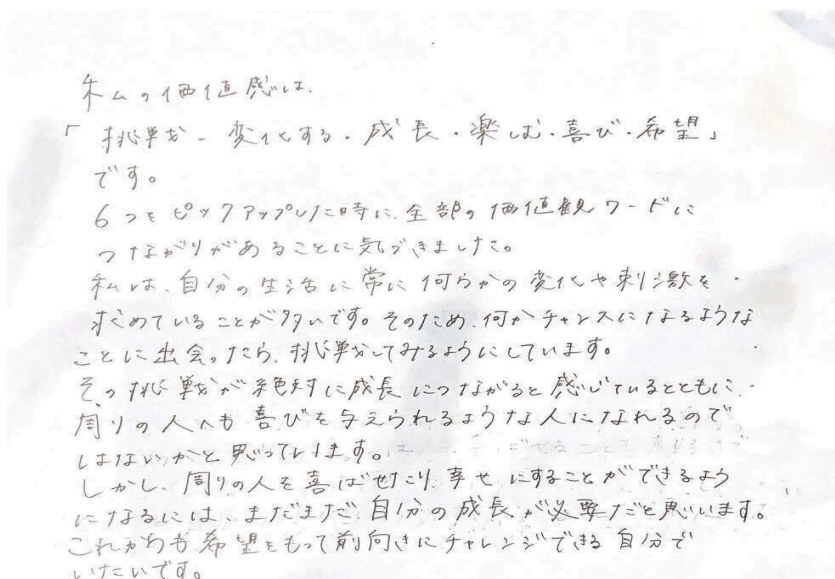 私の価値感は、
「挑戦・変化する・成長・楽しむ・喜び・希望」
です。
6つをピックアップした時に、全部の価値観ワードに
つながりがあることに気づきました。
私は、自分の生活に常に何らかの変化や刺激を
求めていることが多いです。そのため、何かチャンスになるような
ことに出会ったら、挑戦してみるようにしています。
その挑戦が絶対に成長につながると感じているとともに、
周りの人へも喜びを与えられるような人になれるので
はないかと思っています。
しかし、周りの人を喜ばせたり、幸せにすることができるよう
になるには、まだまだ自分の成長が必要だと思います。
これからも希望をもって前向きにチャレンジできる自分で
いたいです。